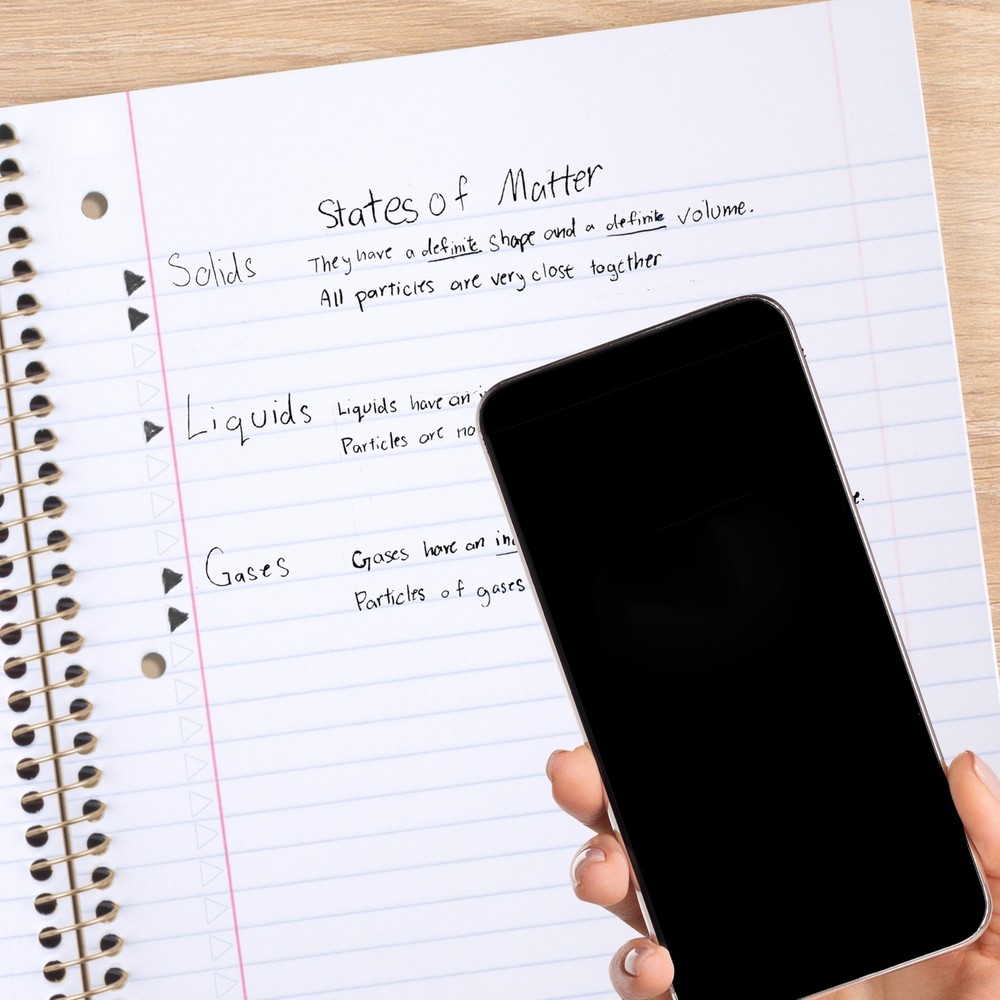 States of Matter
Solids They have a definite shape and a definite volume.
All particles are very close together
Liquids Liquids have an
Particles are
Gases Gases have an
Particles of gases